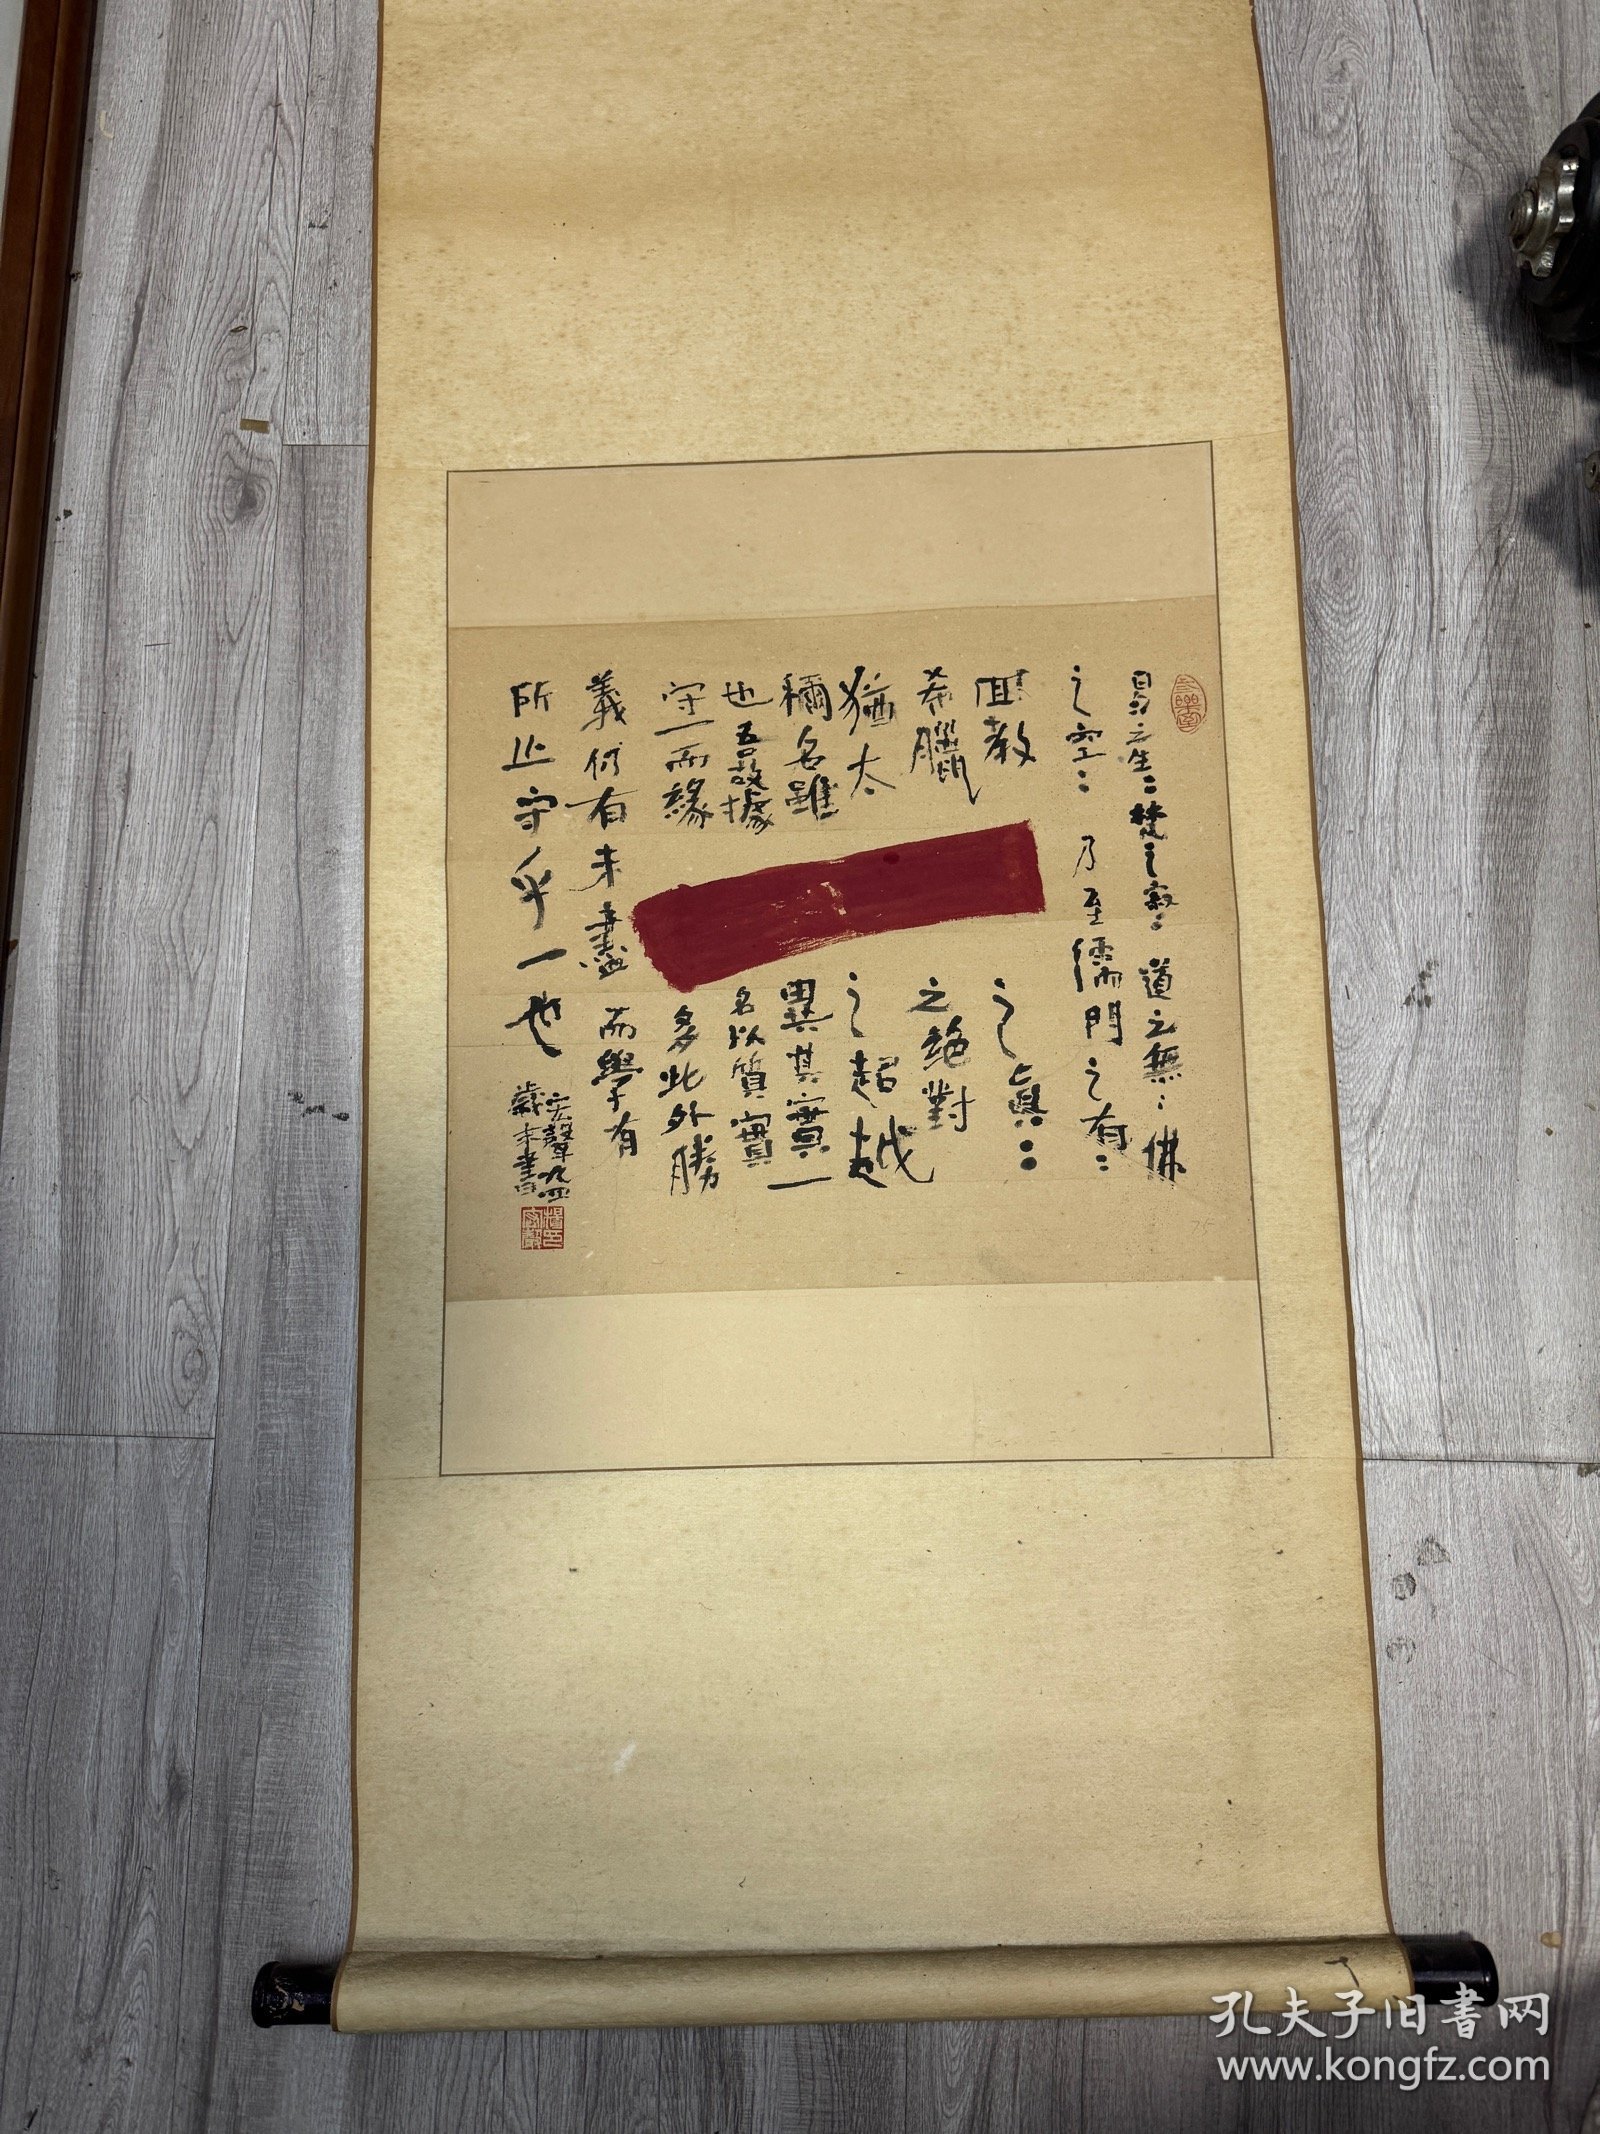 易之生：梵之寂：道之無：佛
之空：乃至儒門之有：
回教之真：
希臘之绝對
猶太之超越
稱名雖異其實一
也吾故據名以質實
守一而緣多此外勝
義何有未盡而學有
所止守乎一也
宏聲九四
歲末書
孔夫子旧書网
www.kongfz.com